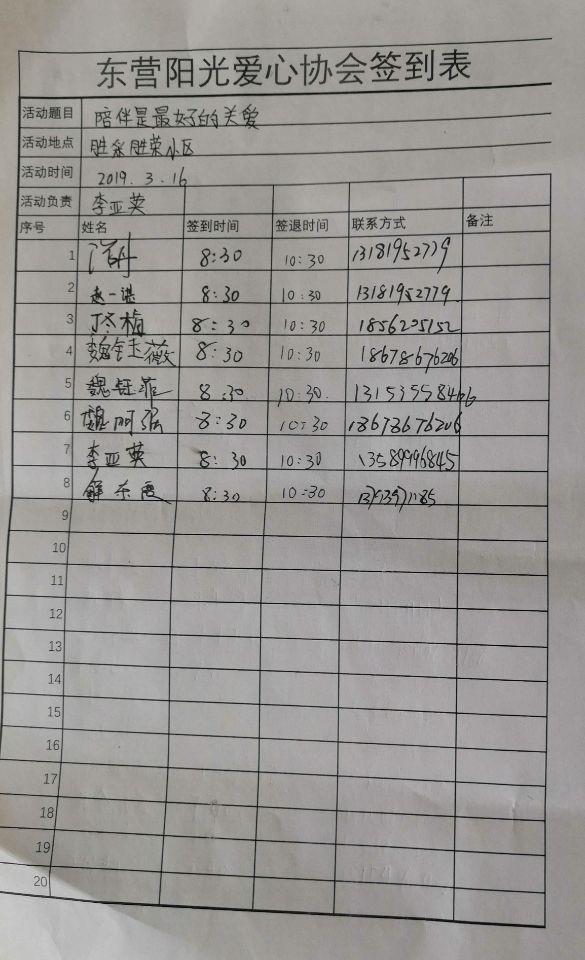 东营阳光爱心协会签到表
活动题目 陪伴是最好的关爱
活动地点 胜东胜荣小区
活动时间 2019.3.16
活动负责 李亚英
序号 姓名 签到时间 签退时间 联系方式 备注
1 8:30 10:30 13181952779
2 赵一谌 8:30 10:30 13181952779
3 丁冬梅 8:30 10:30 1856205152
4 魏钰薇 8:30 10:30 18678676206
5 魏钰菲 8:30 10:30 13153558466
6 魏问强 8:30 10:30 18678676206
7 李亚英 8:30 10:30 13589996845
8 解东霞 8:30 10:30
9
10
11
12
13
14
15
16
17
18
19
20